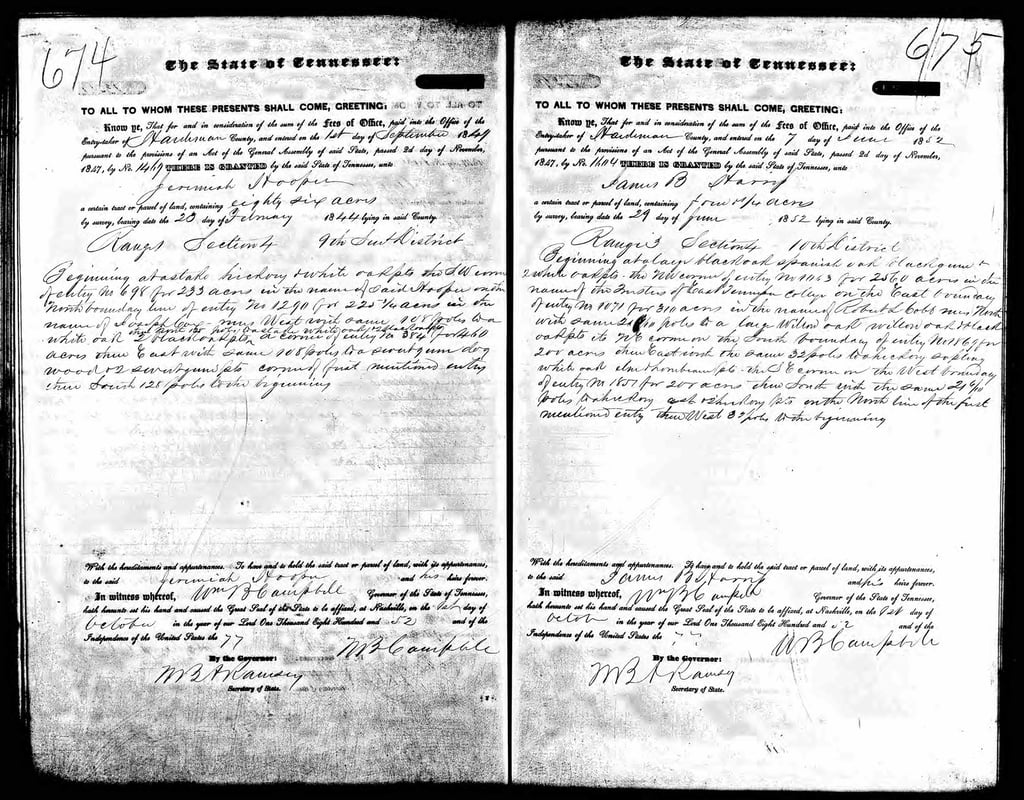 674
The State of Tennessee:
TO ALL TO WHOM THESE PRESENTS SHALL COME, GREETING:
Know ye, That for and in consideration of the sum of the Fees of Office, paid into the Office of the
Entry-taker of Hardeman County, and entered on the 1st day of September 1849
pursuant to the provisions of an Act of the General Assembly of said State, passed 2d day of November,
1847, by No. THERE IS GRANTED by the said State of Tennessee, unto
Jeremiah Hooper
a certain tract or parcel of land, containing eighty six acres
by survey, bearing date the day of February lying in said County.
Range 1 Section 4 9th District
Beginning at a stake hickory & white oak pts the SW corner
of entry No 698 for 233 acres in the name of Said Hooper on the
North boundary line of entry No 1290 for 225 acres in the
name of West with same 108 poles to a
white oak 2 blackoak pts a corner of entry No for 260
acres then East with same 108 poles to a sweetgum dog
wood & 2 sweetgum pts corner of first mentioned entry
then South 128 poles to the beginning
With the hereditaments and appurtenances. To have and to hold the said tract or parcel of land, with its appurtenances,
to the said Jeremiah Hooper and his heirs forever.
In witness whereof, Wm B Campbell Governor of the State of Tennessee,
hath hereunto set his hand and caused the Great Seal of the State to be affixed, at Nashville, on the 1st day of
October in the year of our Lord One Thousand Eight Hundred and 52 and of the
Independence of the United States the 77
By the Governor: W B Campbell
W B A Ramsey
Secretary of State.
675
The State of Tennessee:
TO ALL TO WHOM THESE PRESENTS SHALL COME, GREETING:
Know ye, That for and in consideration of the sum of the Fees of Office, paid into the Office of the
Entry-taker of Hardeman County, and entered on the 7 day of June 1852
pursuant to the provisions of an Act of the General Assembly of said State, passed 2d day of November,
1847, by No. 1604 THERE IS GRANTED by the said State of Tennessee, unto
James B Harris
a certain tract or parcel of land, containing four acres
by survey, bearing date the 29 day of June 1852 lying in said County.
Range 3 Section 4 10th District
Beginning at a large blackoak spanish oak blackgum &
2 white oak pts the NW corner of entry No 1463 for 2560 acres in the
name of the Trustees of East Tennessee College on the East boundary
of entry No 1071 for 310 acres in the name of Robert Cobb runs North
with same poles to a large Willow oak willow oak & black
oak pts its NE corner on the South boundary of entry No 1169 for
200 acres then East with the same 32 poles to a hickory sapling
white oak elm & hornbeam pts the SE corner on the West boundary
of entry No 1857 for 200 acres then South with the same
poles to a hickory ash & hickory pts on the North line of the first
mentioned entry then West 32 poles to the beginning
With the hereditaments and appurtenances. To have and to hold the said tract or parcel of land, with its appurtenances,
to the said James B Harris and his heirs forever.
In witness whereof, Wm B Campbell Governor of the State of Tennessee,
hath hereunto set his hand and caused the Great Seal of the State to be affixed, at Nashville, on the 1st day of
October in the year of our Lord One Thousand Eight Hundred and 52 and of the
Independence of the United States the
By the Governor: W B Campbell
W B A Ramsey
Secretary of State.